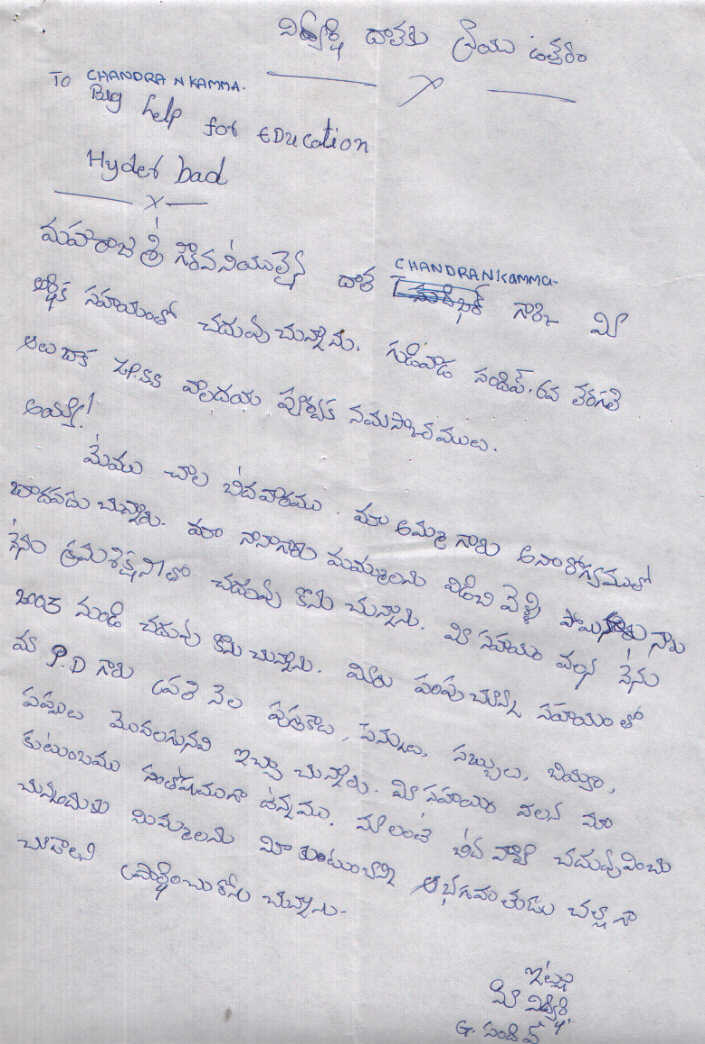 విద్యార్థి దాతకు వ్రాయు ఉత్తరం
X
TO CHANDRA NKAMMA.
Bug help for EDucation
Hyder bad
X
మహారాజశ్రీ గౌరవనియులైన దాత CHANDRANKAMMA- గార్కి మీ
ఆర్థిక సహాయంతో చదువు చున్నాను. గుడివాడ సందీప్. 6వ తరగతి
హృదయ పూర్వక నమస్కారములు.
అయ్యా!
మేము చాల బీదవారము. మా అమ్మ గారు అనారోగ్యముతో
బాదపడు చున్నారు. మా నాన్నగారు మమ్మలను విడిచి వెళ్లి పోయినారు నాకు
నేను క్రమశిక్షణతో చదువు కొను చున్నాను. మీ సహాయం వల్ల నేను
నుండి చదువు కొను చున్నాను. మీరు పంపుచున్న సహాయం తో
మా P.D గారు ప్రతి నెల పుస్తకాలు, పెన్నులు, సబ్బులు, బియ్యం,
పప్పులు మొదలగునవి ఇచ్చు చున్నారు. మీ సహాయం వలన మా
కుటుంబము సంతోషముగా ఉన్నము. మాలంటి బీద వాళ్ళని చదువువించు
చున్నందుకు మిమ్మాలను మీ కుంటుంబాన్ని ఆ భగవంతుడు చల్లగా
చూడాలని ప్రార్థించు కొను చున్నాను.
ఇట్లు
మీ విద్యార్థి
G. సందీప్